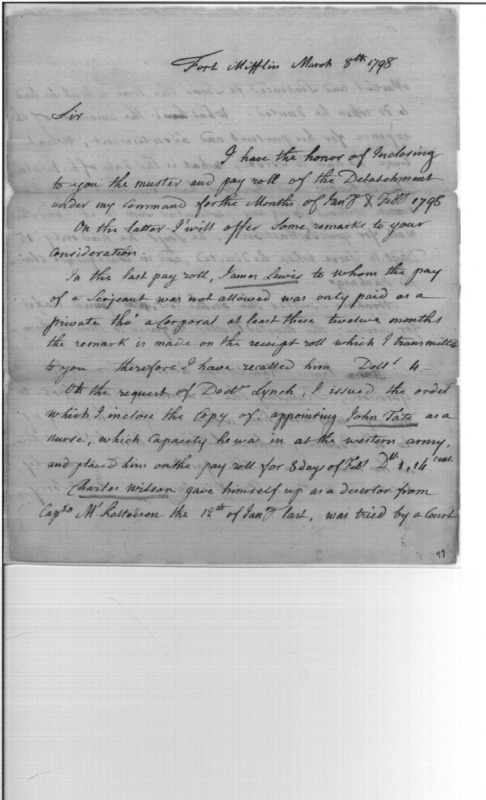 Fort Mifflin March 8th 1798
Sir
I have the honor of Inclosing
to you the muster and pay roll of the Detatchment
under my Command for the Months of Jany & Feby 1798
On the latter I will offer Some remarks to your
Consideration.
In the last pay roll, James Lewis to whom the pay
of a Serjeant was not allowed was only paid as a
private tho' a Corporal at least these twelve months
the remark is made on the receipt roll which I transmitted
to you therefore I have recalled him Dolls 4
On the request of Doctr Lynch, I issued the order
which I inclose the Copy of, appointing John Tate as a
nurse, which Capacity he was in at the western army,
and placed him on the pay roll for 8 day of Feby Ds 1,14 cents
Charles Wilson gave himself up as a desertor from
Captn the 12th of Jany last, was tried by a Court
97